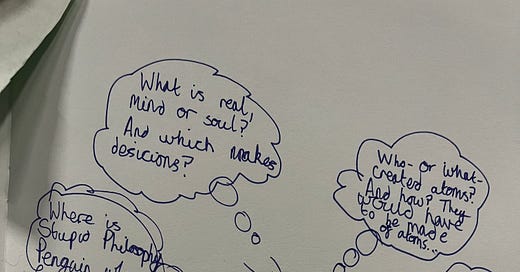 What is real,
mind or soul?
And which makes
desicions?
Who- or what-
created atoms?
And how? They
would have
to be made
of atoms...
Where is
Stupid Philosophy
Penguin